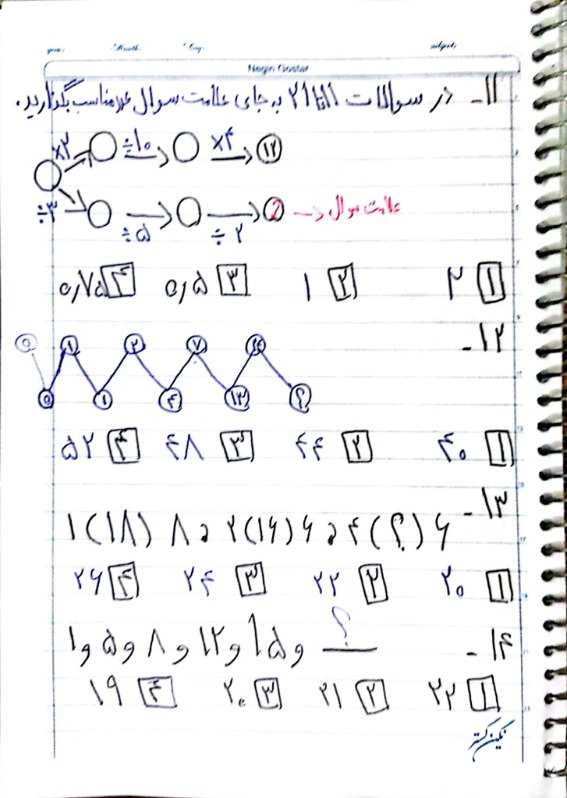 Negin Gostar
۱۱- در سوالات ۱۱ تا ۲۱ به جای علامت سوال عدد مناسب بگذارید.
×۲ ÷۱۰ ×۴ ۱۲
÷۳ ÷۵ ÷۲ ? → علامت سوال
۱ ۲ ۲ ۱ ۳ ۰٫۵ ۴ ۰٫۷۵
۱۲-
۰ ۱ ۲ ۷
۰ ۱ ۴ ۱۳ ؟
۱ ۴۰ ۲ ۴۴ ۳ ۴۸ ۴ ۵۲
۱۳-
۱(۱۸) ۸ و ۲(۱۶)۶ و ۴(؟)۶
۱ ۲۰ ۲ ۲۲ ۳ ۲۴ ۴ ۲۶
۱۴-
۱ و ۵ و ۸ و ۱۲ و ۱۵ و ؟
۱ ۲۲ ۲ ۲۱ ۳ ۲۰ ۴ ۱۹
نگین گستر